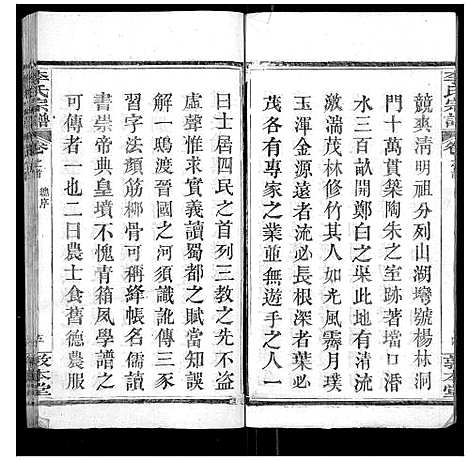 競爽清明祖分列山湖灣號楊林洞
門十萬貫築陶朱之室跡著壋口湑
水三百畝開鄭白之渠此地有清
激湍茂林修竹其人如光風霽月璞
玉渾金源遠者流必長根深者葉必
茂各有專家之業並無遊手之人
曰士居四民之首列三教之先不盜
虛聲惟求實義讀蜀都之賦當知誤
解一鴟渡晉國之河須識訛傳三豕
習字法顏筋柳骨可稱絳帳名儒讀
書崇帝典皇墳不愧青箱夙學譜之
可傳者一也二曰農士食舊德農服
李氏宗譜
卷之首
總序
敦本堂